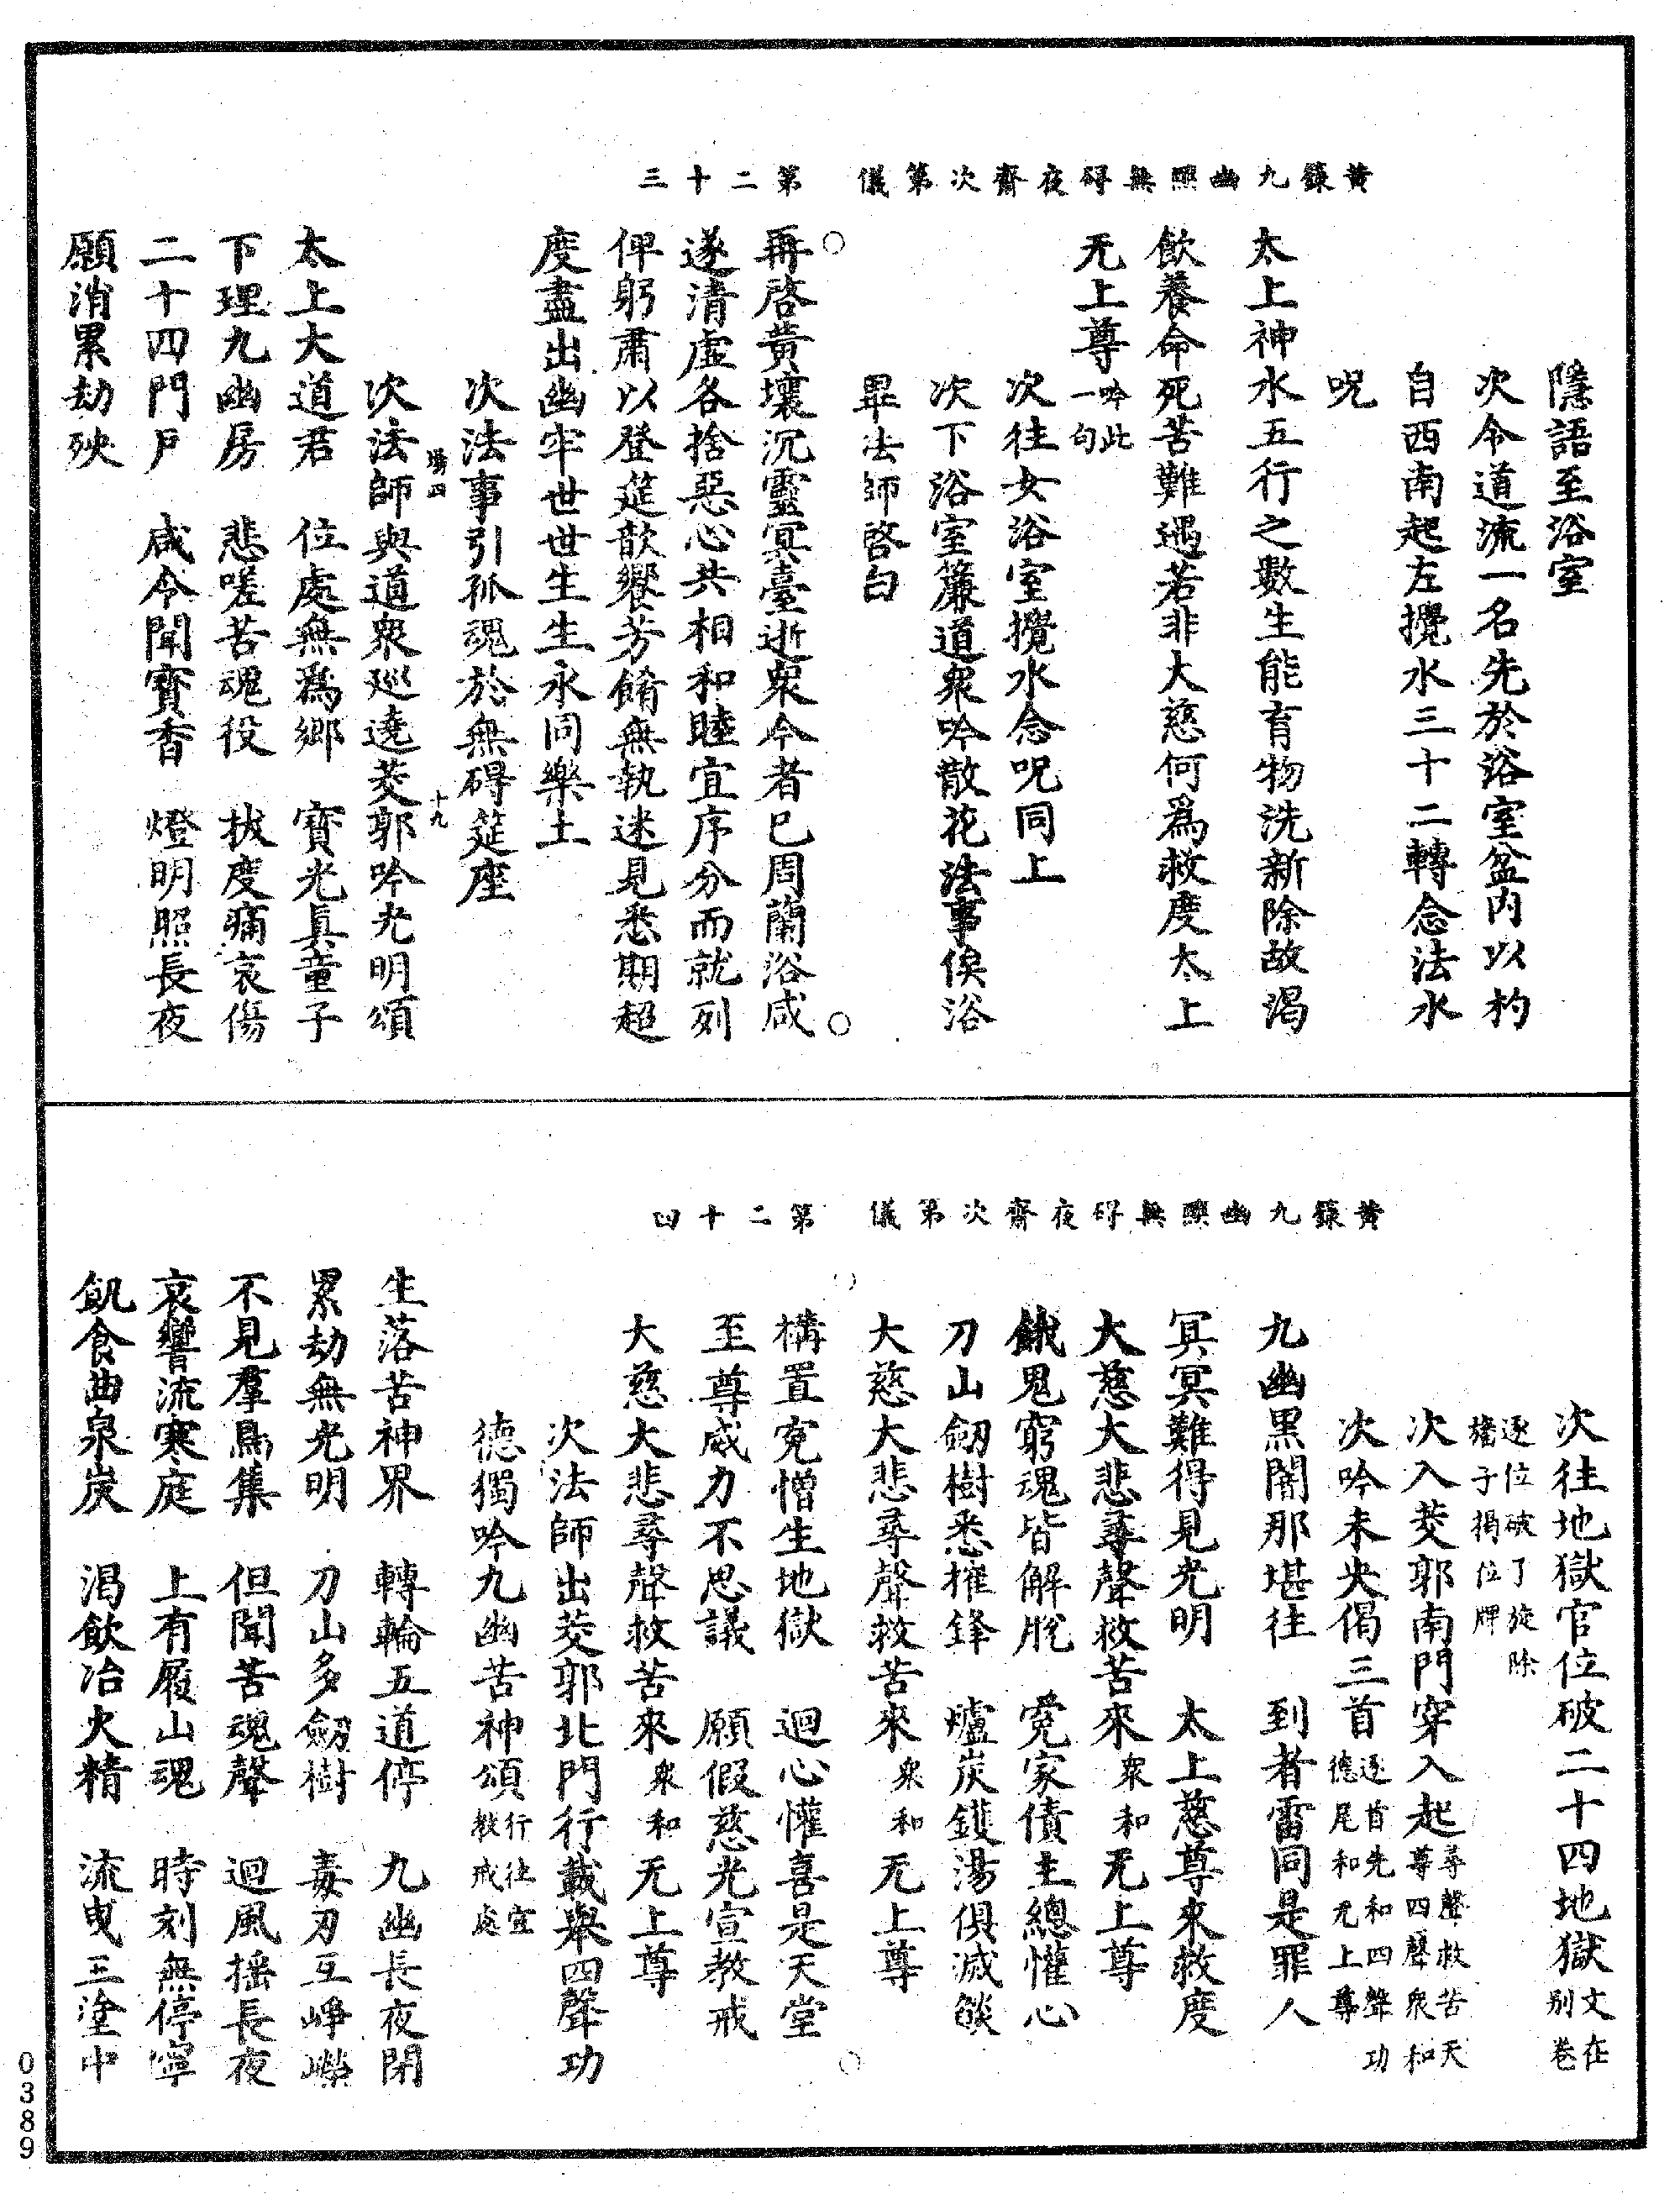 黃籙九幽醮無碍夜齋次第儀　第二十三
隱語至浴室
次令道流一名先於浴室盆內以杓
自西南起左攪水三十二轉念法水
呪
太上神水五行之數生能育物洗新除故渴
飲養命死苦難遇若非大慈何爲救度太上
无上尊吟此一句
次往女浴室攪水念呪同上
次下浴室簾道衆吟散花法事俟浴
畢法師啓白
再啓黃壤沉靈冥臺逝衆今者已周蘭浴咸
遂清虛各捨惡心共相和睦宜序分而就列
俾躬肅以登筵歆饗芳餚無執迷見悉期超
度盡出幽牢世世生生永同樂土
次法事引孤魂於無碍筵座
四
十九
次法師與道衆巡遶茭郭吟光明頌
太上大道君　位處無爲鄉　寶光眞童子
下理九幽房　悲嗟苦魂役　拔度痛哀傷
二十四門戶　咸令聞寶香　燈明照長夜
願消累劫殃
黃籙九幽醮無碍夜齋次第儀　第二十四
次往地獄官位破二十四地獄文在別卷
逐位破了旋除
旛子揭位牌
次入茭郭南門穿入起尋聲救苦天尊四聲衆和
次吟未央偈三首逐首先和四聲功德尾和无上尊
九幽黑闇那堪往　到者雷同是罪人
冥冥難得見光明　太上慈尊來救度
大慈大悲尋聲救苦來衆和无上尊
餓鬼窮魂皆解脫　寃家債主總懽心
刀山劒樹悉摧鋒　爐炭鑊湯俱滅燄
大慈大悲尋聲救苦來衆和无上尊
構置寃憎生地獄　迴心懽喜是天堂
至尊威力不思議　願假慈光宣教戒
大慈大悲尋聲救苦來衆和无上尊
次法師出茭郭北門行䡖舉四聲功
德獨吟九幽苦神頌行往宣教戒處
生落苦神界　轉輪五道停　九幽長夜閉
累劫無光明　刀山多劒樹　毒刃互崢嶸
不見羣鳥集　但聞苦魂聲　迴風揺長夜
哀響流寒庭　上有履山魂　時刻無停寧
飢食曲泉炭　渴飲冶火精　流曳三塗中
0389